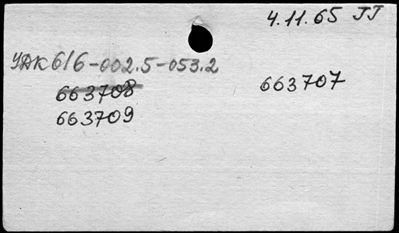 4.11.65 JJ
УДК 616-002.5-053.2
663708 663707
663709